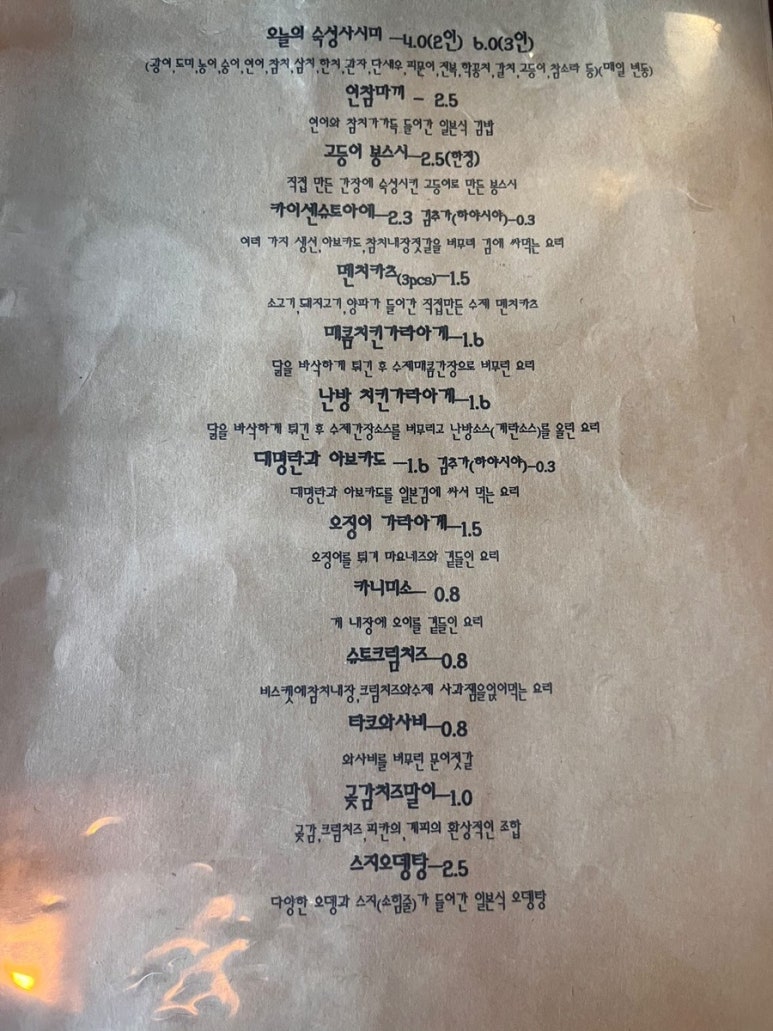 오늘의 숙성사시미 —4.0(2인) 6.0(3인)
(광어,도미,농어,숭어,연어,참치,삼치,한치,관자,단새우,피문어,전복,학꽁치,갈치,고등어,참소라 등)(매일 변동)
연참마끼 — 2.5
연어와 참치가가득 들어간 일본식 김밥
고등어 봉스시—2.5(한정)
직접 만든 간장에 숙성시킨 고등어로 만든 봉스시
카이센슈토아에—2.3 김추가(하야시야)—0.3
여러 가지 생선,아보카도,참치내장젓갈을 버무려 김에 싸먹는 요리
멘치카츠(3pcs)—1.5
소고기,돼지고기,양파가 들어간 직접만든 수제 멘치카츠
매콤치킨가라아게—1.6
닭을 바삭하게 튀긴 후 수제매콤간장으로 버무린 요리
난방 치킨가라아게—1.6
닭을 바삭하게 튀긴 후 수제간장소스를 버무리고 난방소스(계란소스)를 올린 요리
대명란과 아보카도 —1.6 김추가(하야시야)—0.3
대명란과 아보카도를 일본김에 싸서 먹는 요리
오징어 가라아게—1.5
오징어를 튀겨 마요네즈와 곁들인 요리
카니미소— 0.8
게 내장에 오이를 곁들인 요리
슈토크림치즈—0.8
비스켓에참치내장,크림치즈와수제 사과잼을얹어먹는 요리
타코와사비—0.8
와사비를 버무린 문어젓갈
곶감치즈말이—1.0
곶감,크림치즈,피칸의,계피의 환상적인 조합
스지오뎅탕—2.5
다양한 오뎅과 스지(소힘줄)가 들어간 일본식 오뎅탕